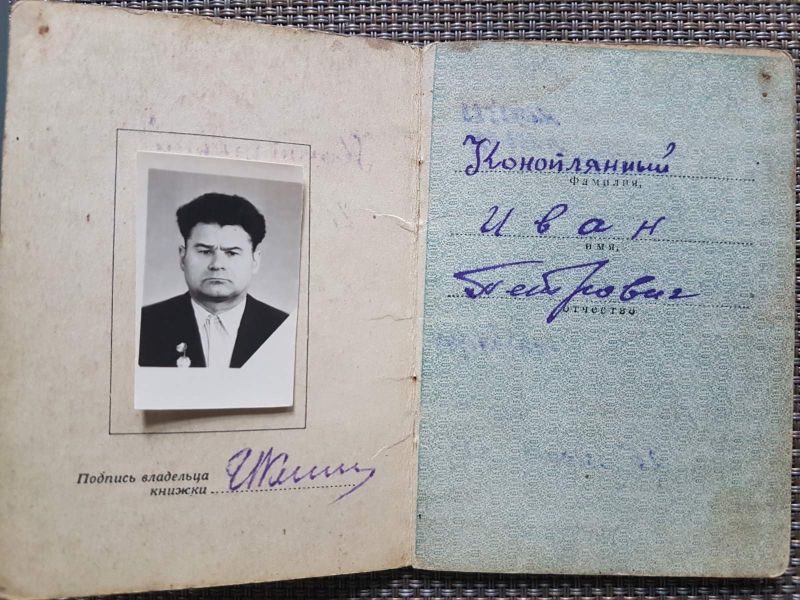 Подпись владельца
книжки
Конойлянный
фамилия,
Иван
имя,
Петрович
отчество